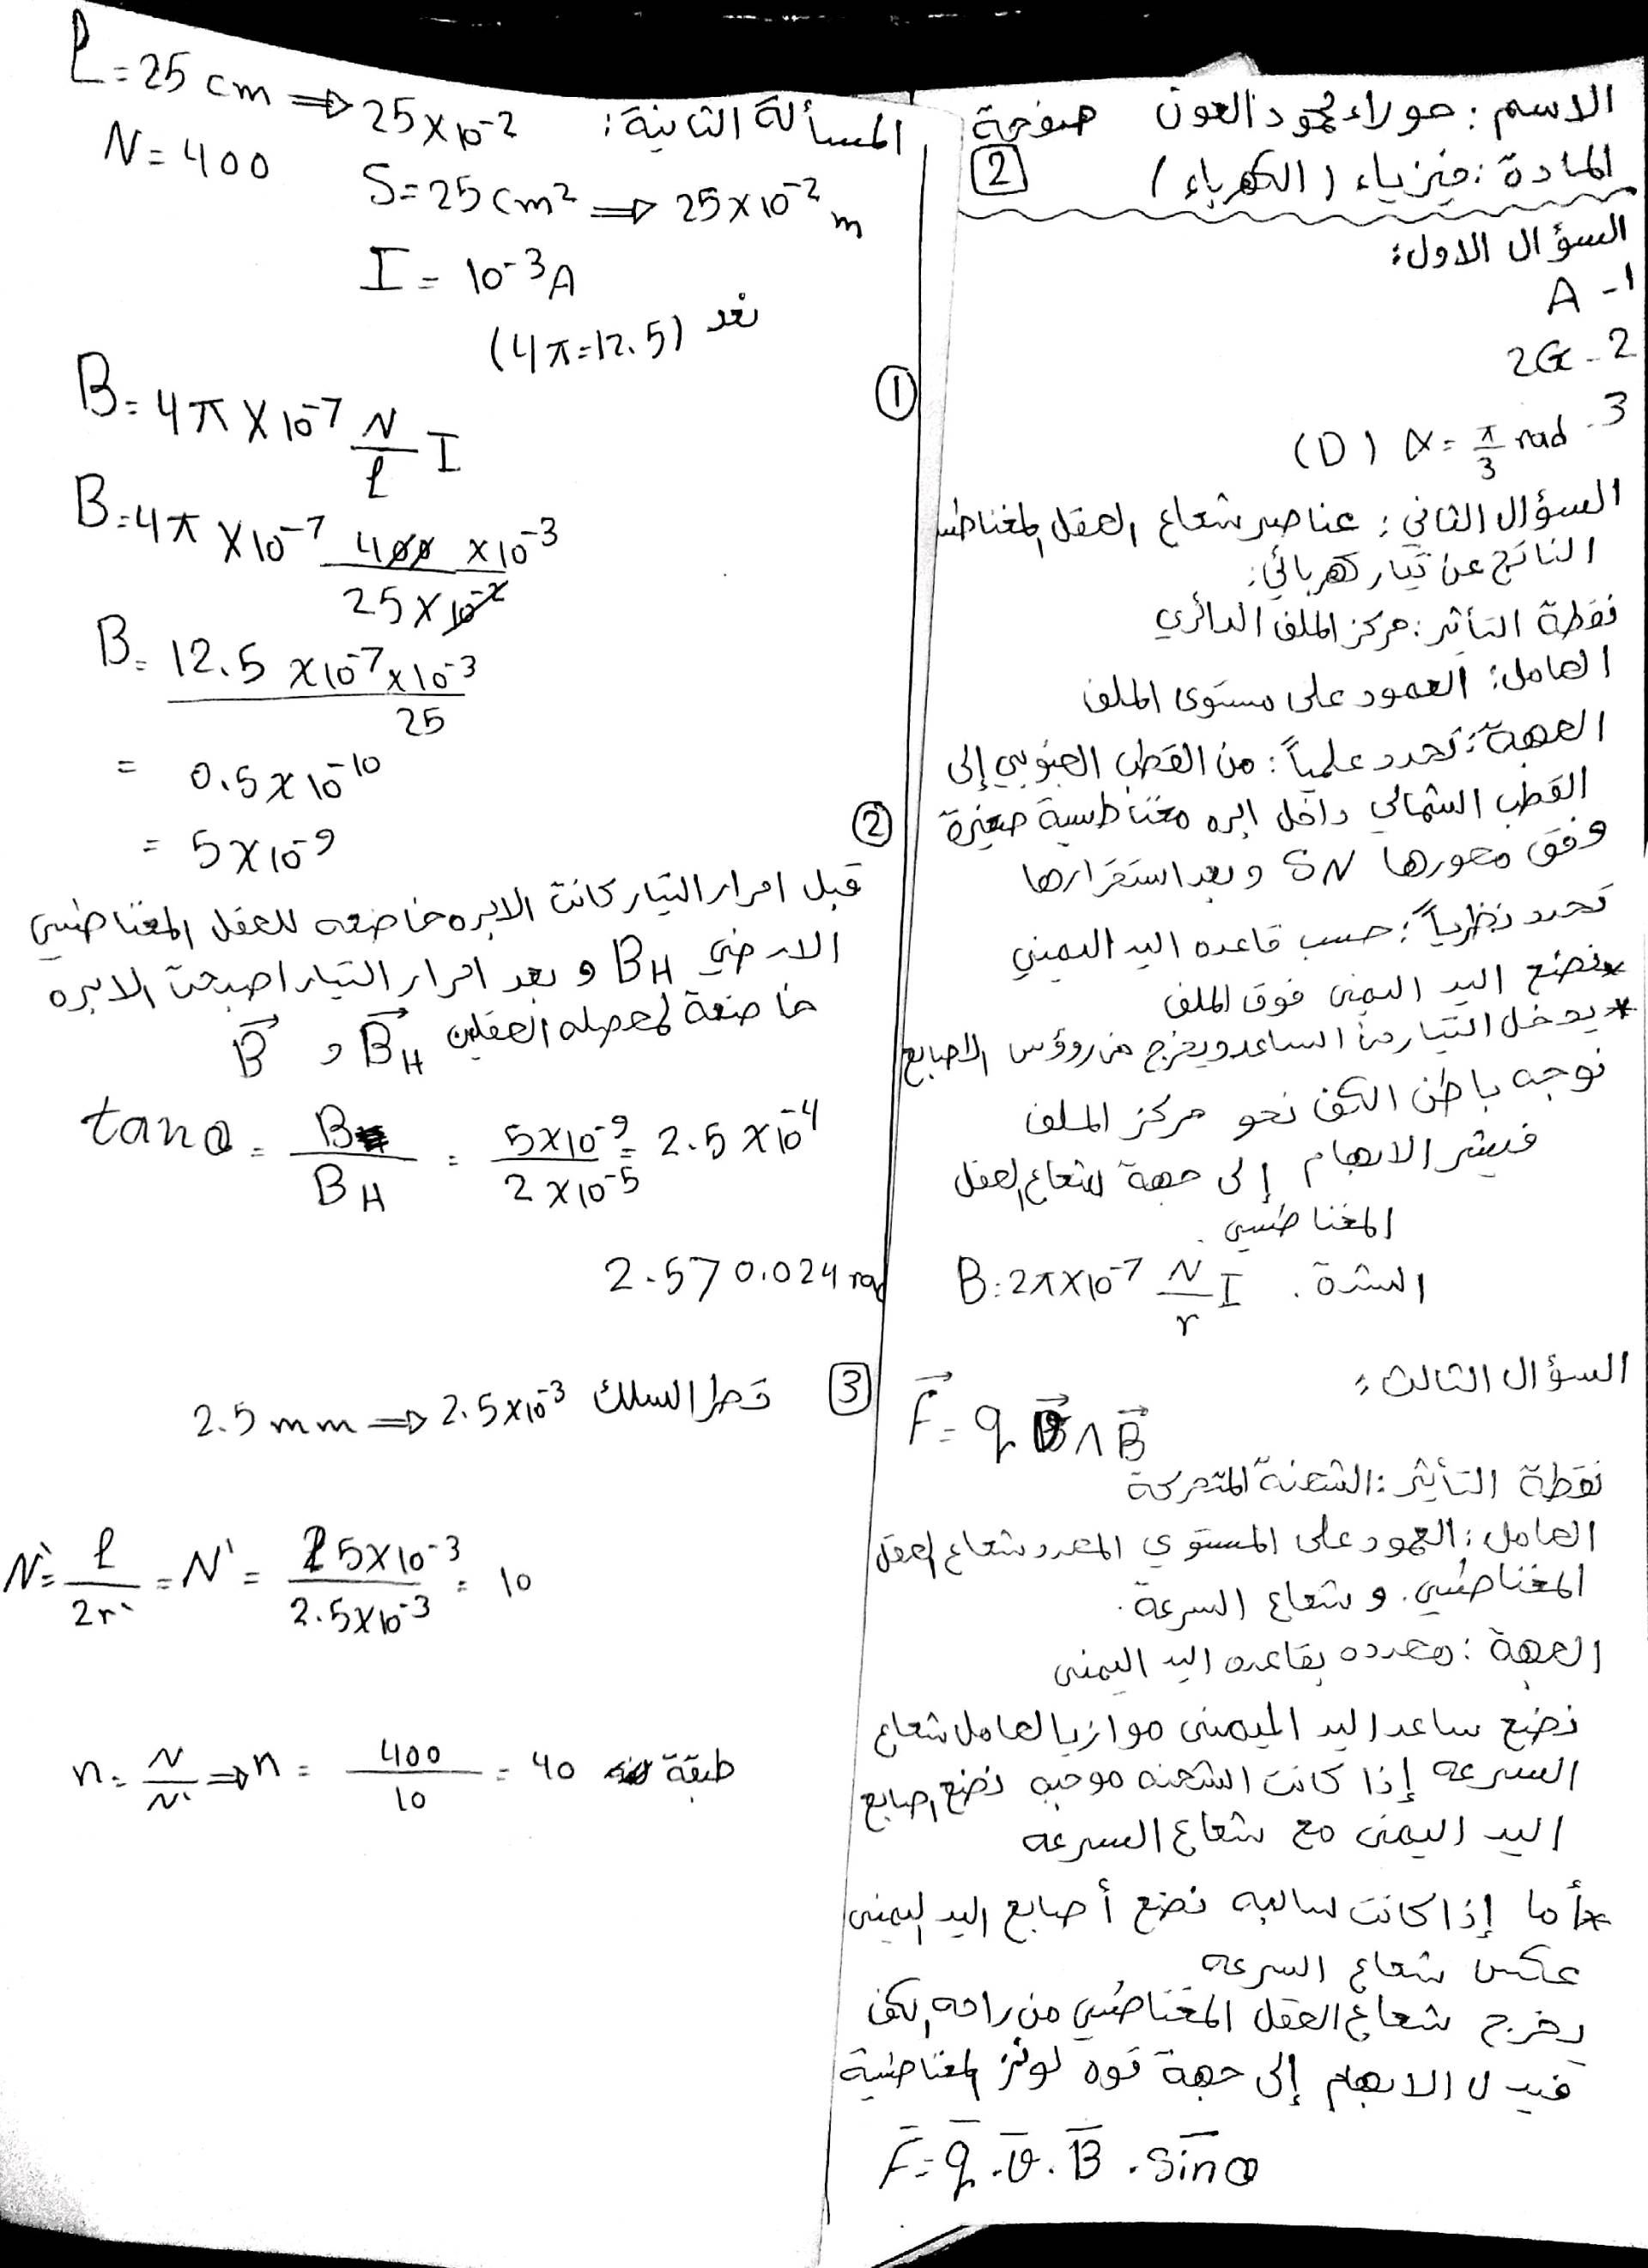 الاسم: حوراء محمود العون صفحة
المادة: فيزياء (الكهرباء) 2
السؤال الاول:
1- A
2- 2G
3- (D) α = π/3 rad
السؤال الثاني: عناصر شعاع الحقل المغناطيسي
الناتج عن تيار كهربائي:
نقطة التأثير: مركز الملف الدائري
الحامل: العمود على مستوى الملف
الجهة: تحدد علمياً: من القطب الجنوبي إلى
القطب الشمالي داخل ابره مغناطيسية صغيرة
وفق محورها SN وبعد استقرارها
تحدد نظرياً: حسب قاعده اليد اليمنى
*نضع اليد اليمنى فوق الملف
*يدخل التيار من الساعد ويخرج من رؤوس الاصابع
نوجه باطن الكف نحو مركز الملف
فيشير الابهام إلى جهة شعاع الحقل
المغناطيسي.
الشدة. B = 2π×10^-7 N/r I
السؤال الثالث:
F = q v ∧ B
نقطة التأثير: الشحنة المتحركة
الحامل: العمود على المستوي المحدد بشعاع الحقل
المغناطيسي. و شعاع السرعة.
الجهة: محدده بقاعده اليد اليمنى
نضع ساعد اليد اليمنى موازيا لحامل شعاع
السرعه إذا كانت الشحنه موجبه نضع اصابع
اليد اليمنى مع شعاع السرعه
*أما إذا كانت سالبه نضع أصابع اليد اليمنى
عكس شعاع السرعه
يخرج شعاع الحقل المغناطيسي من راحه الكف
فيدل الابهام إلى جهة قوه لورنز المغناطيسية
F = q . v . B . sin θ
المسألة الثانية:
ℓ = 25 cm ⇒ 25×10^-2
N = 400
S = 25 cm² ⇒ 25×10^-2 m
I = 10^-3 A
نعد (4π = 12.5)
1
B = 4π × 10^-7 N/ℓ I
B = 4π × 10^-7 400/25×10^-2 ×10^-3
B = 12.5 ×10^-7 ×10^-3 / 25
= 0.5×10^-10
= 5×10^-9
2
قبل امرار التيار كانت الابره خاضعه للحقل المغناطيسي
الارضي BH و بعد امرار التيار اصبحت الابره
خاضعة لمحصله الحقلين BH و B
tan θ = B/BH = 5×10^-9/2×10^-5 = 2.5×10^-4
2.57 0.024 rad
3
قطر السلك 2.5 mm ⇒ 2.5×10^-3
N' = ℓ/2r' = N' = 25×10^-3/2.5×10^-3 = 10
n = N/N' ⇒ n = 400/10 = 40 طبقة